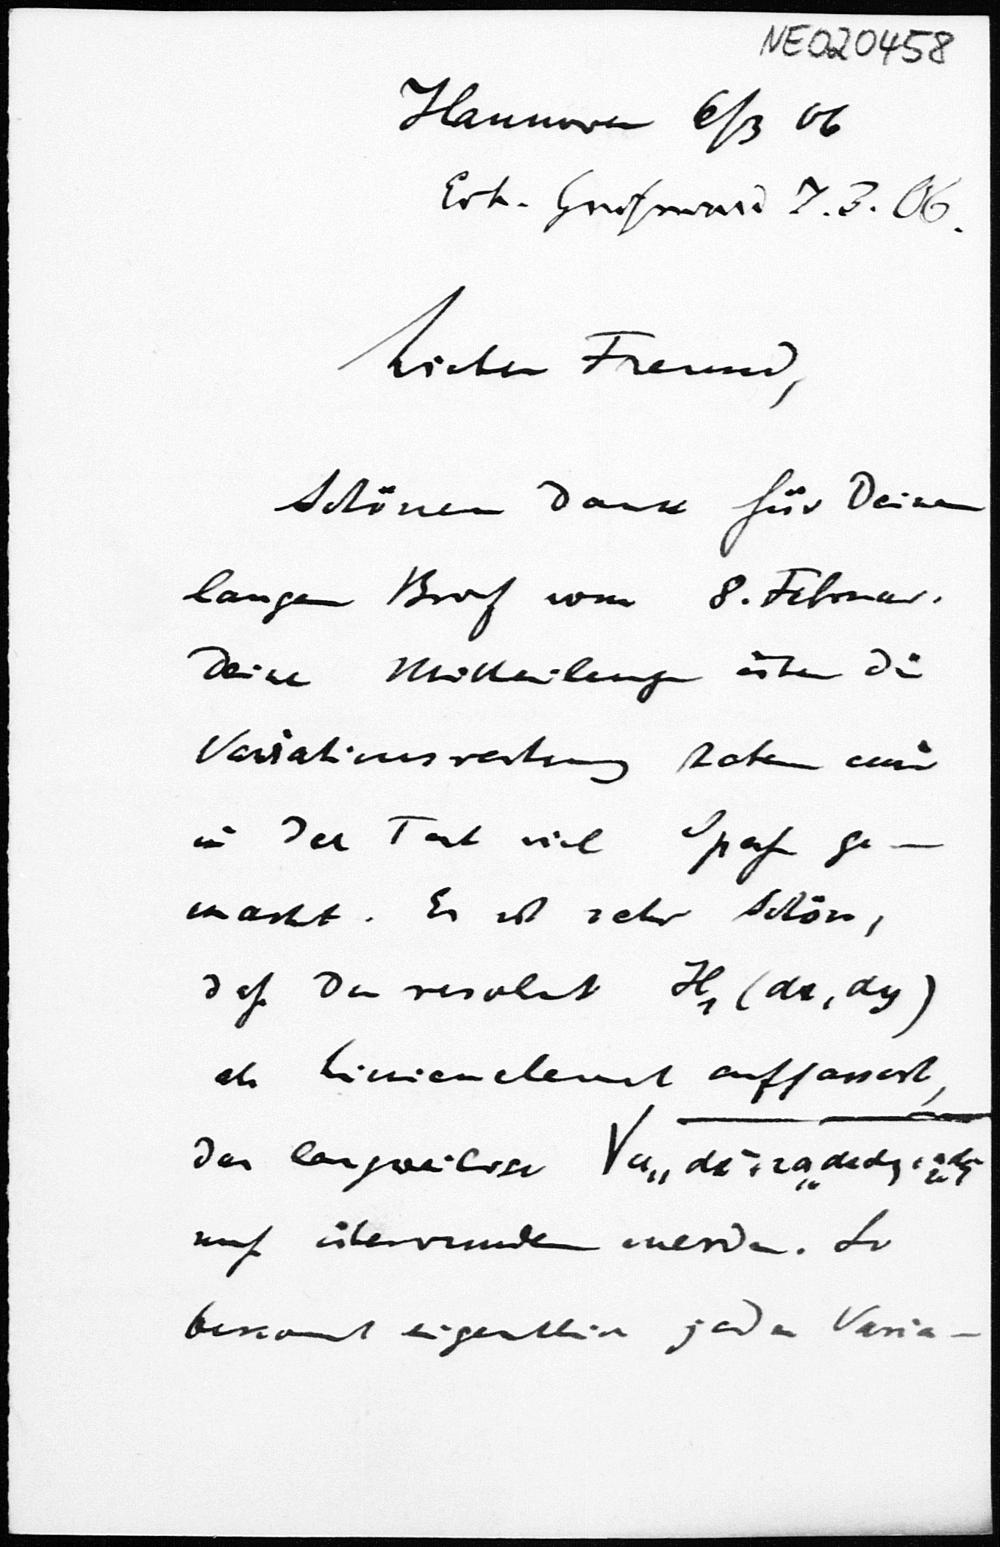 NE020458
Hannover 6/3 06
Erh. Greifswald 7.3.06.
Lieber Freund,
Schönen Dank für Deinen
langen Brief vom 8. Februar.
Deine Mittheilungen über die
Variationsrechnung haben mir
in der That viel Spaß ge-
macht. Es ist sehr schön,
daß Du resolut H₁(dx, dy)
als Linienelement auffassest,
das langweilige √a₁₁dx²+2a₁₂dxdy+a₂₂dy²
muß überwunden werden. So
bekommt eigentlich jedes Varia-